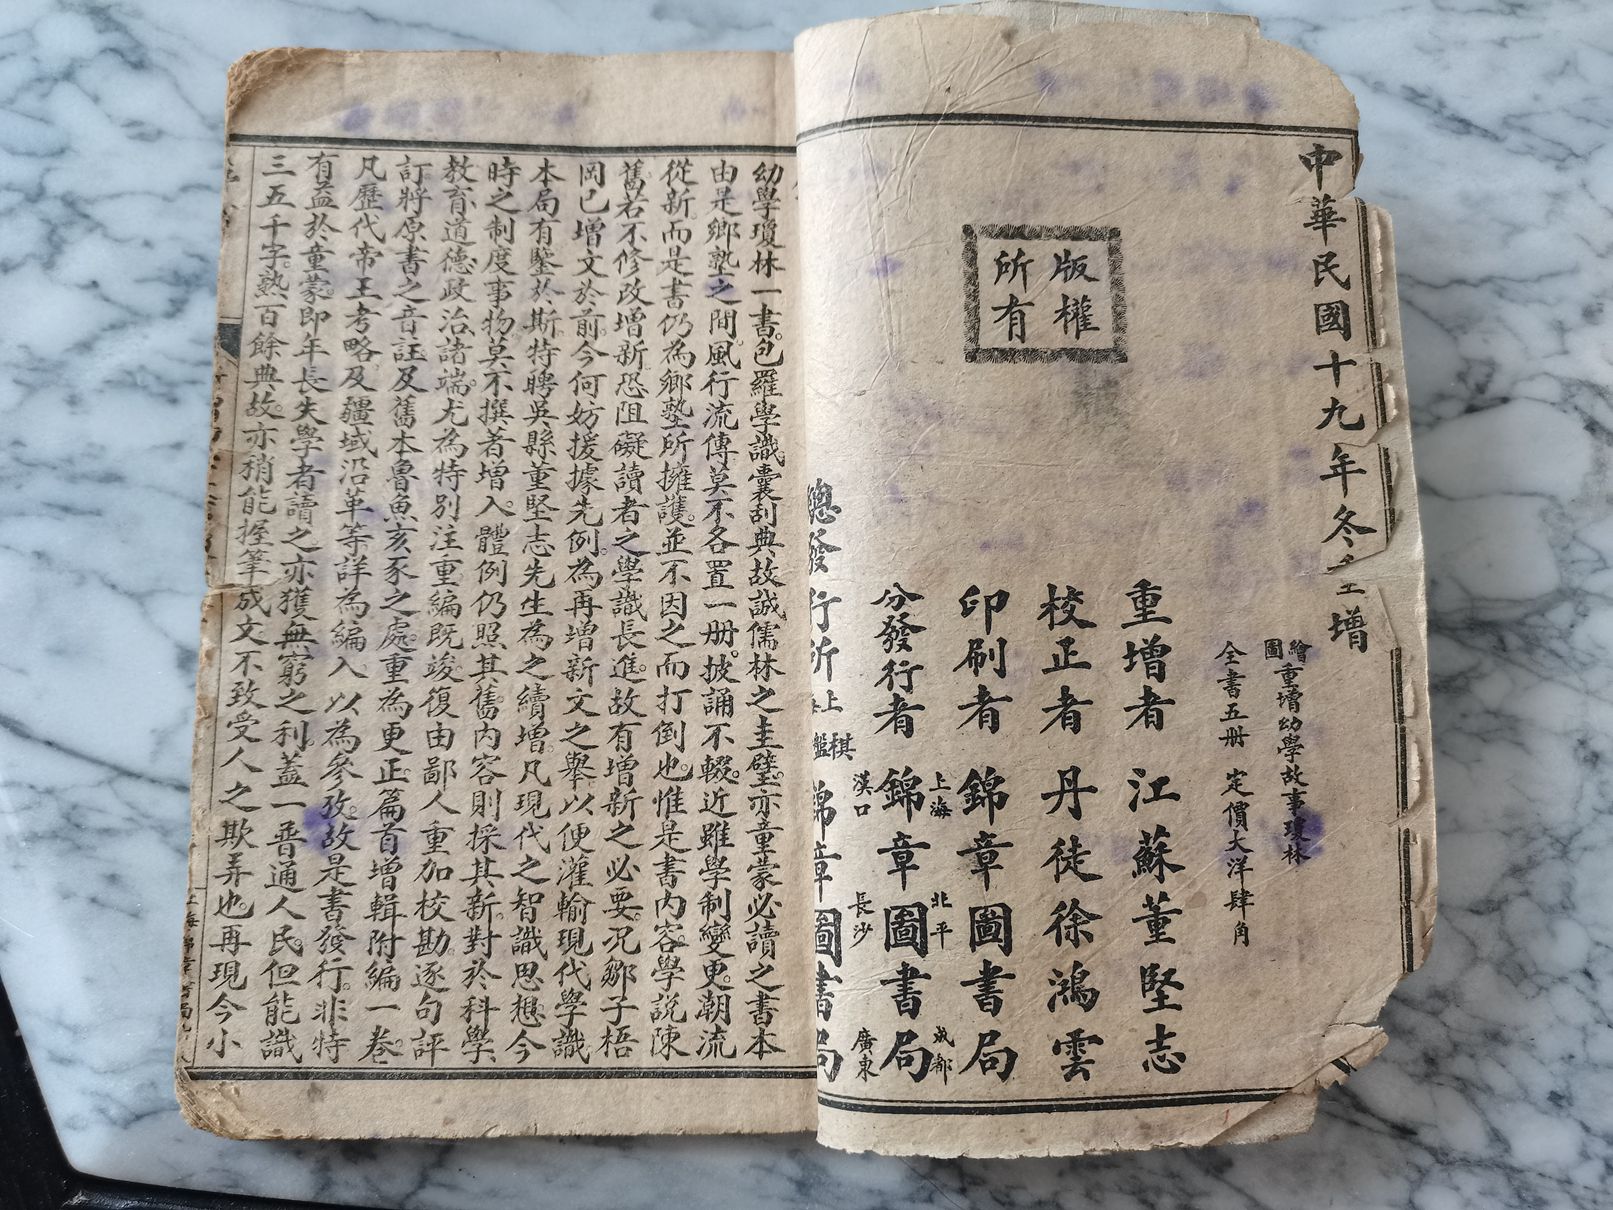 中華民國十九年冬
增
繪圖重增幼學故事瓊林
全書五册 定價大洋肆角
版權
所有
重增者 江蘇董堅志
校正者 丹徒徐鴻雲
印刷者 錦章圖書局
上海 北平 成都
分發行者 錦章圖書局
漢口 長沙 廣東
總發行所 上 棋 錦章圖書局
幼學瓊林一書。包羅學識。囊刮典故。誠儒林之圭璧。亦童蒙必讀之書本
由是鄉塾之間。風行流傳。莫不各置一册。披誦不輟。近雖學制變更。潮流
從新。而是書仍為鄉塾所擁護。並不因之而打倒也。惟是書內容。學說陳
舊。若不修改增新。恐阻礙讀者之學識長進。故有增新之必要。况鄒子梧
岡已增文於前。今何妨援據先例。為再增新文之舉。以便灌輸現代學識
本局有鑒於斯。特聘吳縣董堅志先生為之續增。凡現代之智識思想。今
時之制度事物。莫不撰著增入。體例仍照其舊。內容則採其新。對於科學
教育道德政治諸端。尤為特別注重。編既竣。復由鄙人重加校勘。逐句評
訂。將原書之音註及舊本魯魚亥豕之處。重為更正。篇首增輯附編一卷。
凡歷代帝王考略。及疆域沿革等。詳為編入。以為參攷。故是書發行。非特
有益於童蒙。即年長失學者讀之。亦獲無窮之利。蓋一普通人民。但能識
三五千字。熟百餘典故。亦稍能握筆成文。不致受人之欺弄也。再現今小